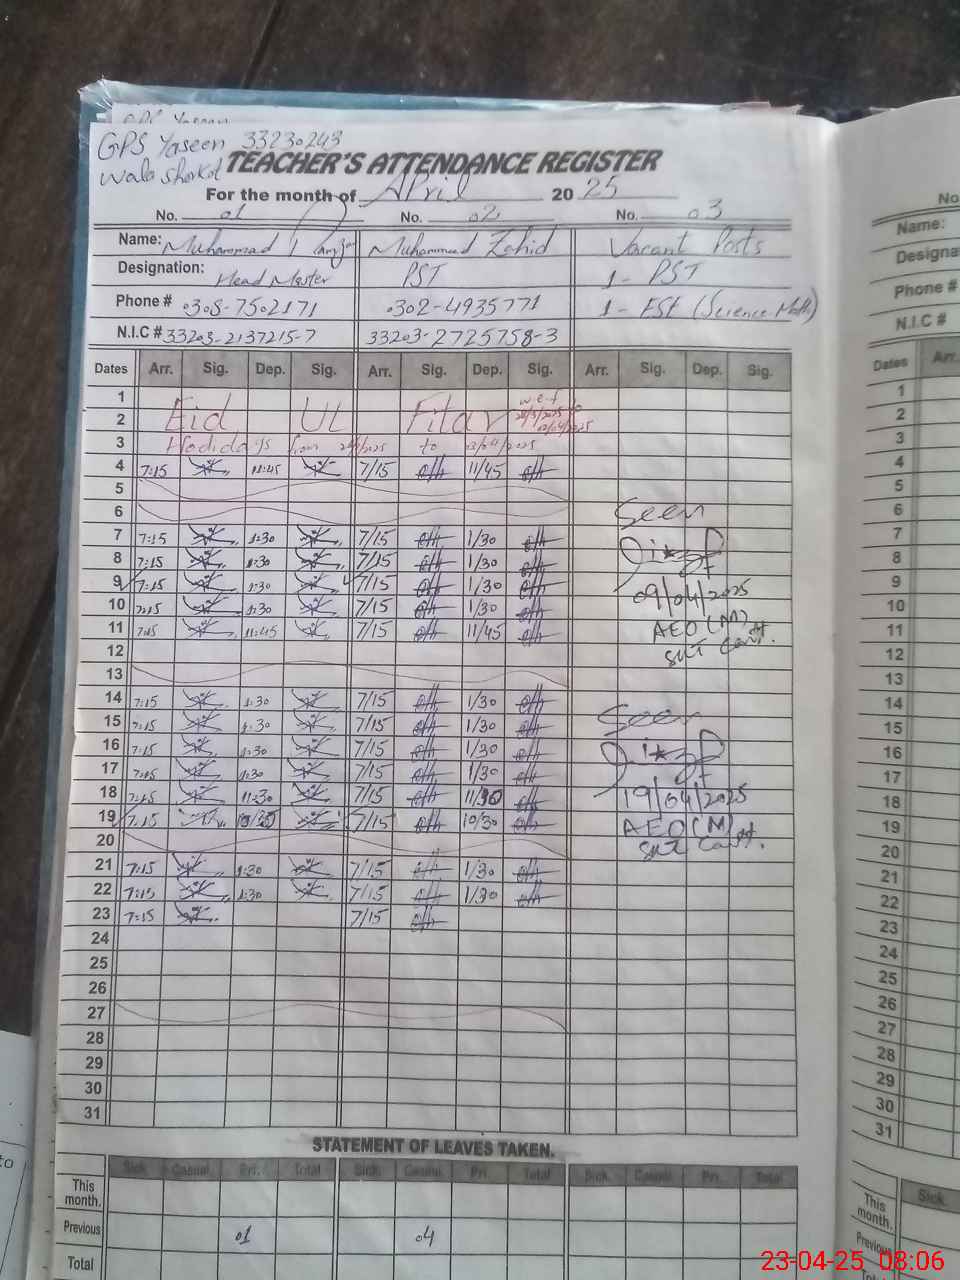 GPS Yaseen 33230243
wala Shorkot
TEACHER'S ATTENDANCE REGISTER
For the month of April 20 25
No. 01 No. 02 No. 03
Name: Muhammad Muhammad Zahid Vacant Posts
Designation: Head Master PST 1- PST
Phone # 0308-7502171 0302-4935771 1- EST (Science Math)
N.I.C # 33203-2137215-7 33203-2725758-3
Dates Arr. Sig. Dep. Sig. Arr. Sig. Dep. Sig. Arr. Sig. Dep. Sig.
1
2 Eid UL Fitar w.e.f
3 Hodidays from to 03/04/2025
4 7:15 11:45 7/15 11/45
5
6 Seen
7 7:15 1:30 7/15 1/30
8 7:15 1:30 7/15 1/30
9 7:15 1:30 7/15 1/30 09/04/2025
10 7:15 1:30 7/15 1/30
11 7:15 11:45 7/15 11/45 AEO (M)
12
13
14 7:15 1:30 7/15 1/30
15 7:15 1:30 7/15 1/30 Seen
16 7:15 1:30 7/15 1/30
17 7:15 1:30 7/15 1/30
18 7:15 11:30 7/15 11/30 19/04/2025
19 7:15 7/15 10/30 AEO (M)
20
21 7:15 1:30 7/15 1/30
22 7:15 1:30 7/15 1/30
23 7:15 7/15
24
25
26
27
28
29
30
31
STATEMENT OF LEAVES TAKEN.
Sick. Casual. Pri. Total Sick. Casual. Pri. Total Sick. Casual. Pri. Total
This month.
Previous 01 04
Total
No
Name:
Designa
Phone #
N.I.C #
Dates Arr.
1
2
3
4
5
6
7
8
9
10
11
12
13
14
15
16
17
18
19
20
21
22
23
24
25
26
27
28
29
30
31
Sick.
This month.
Previous
Total
23-04-25 08:06